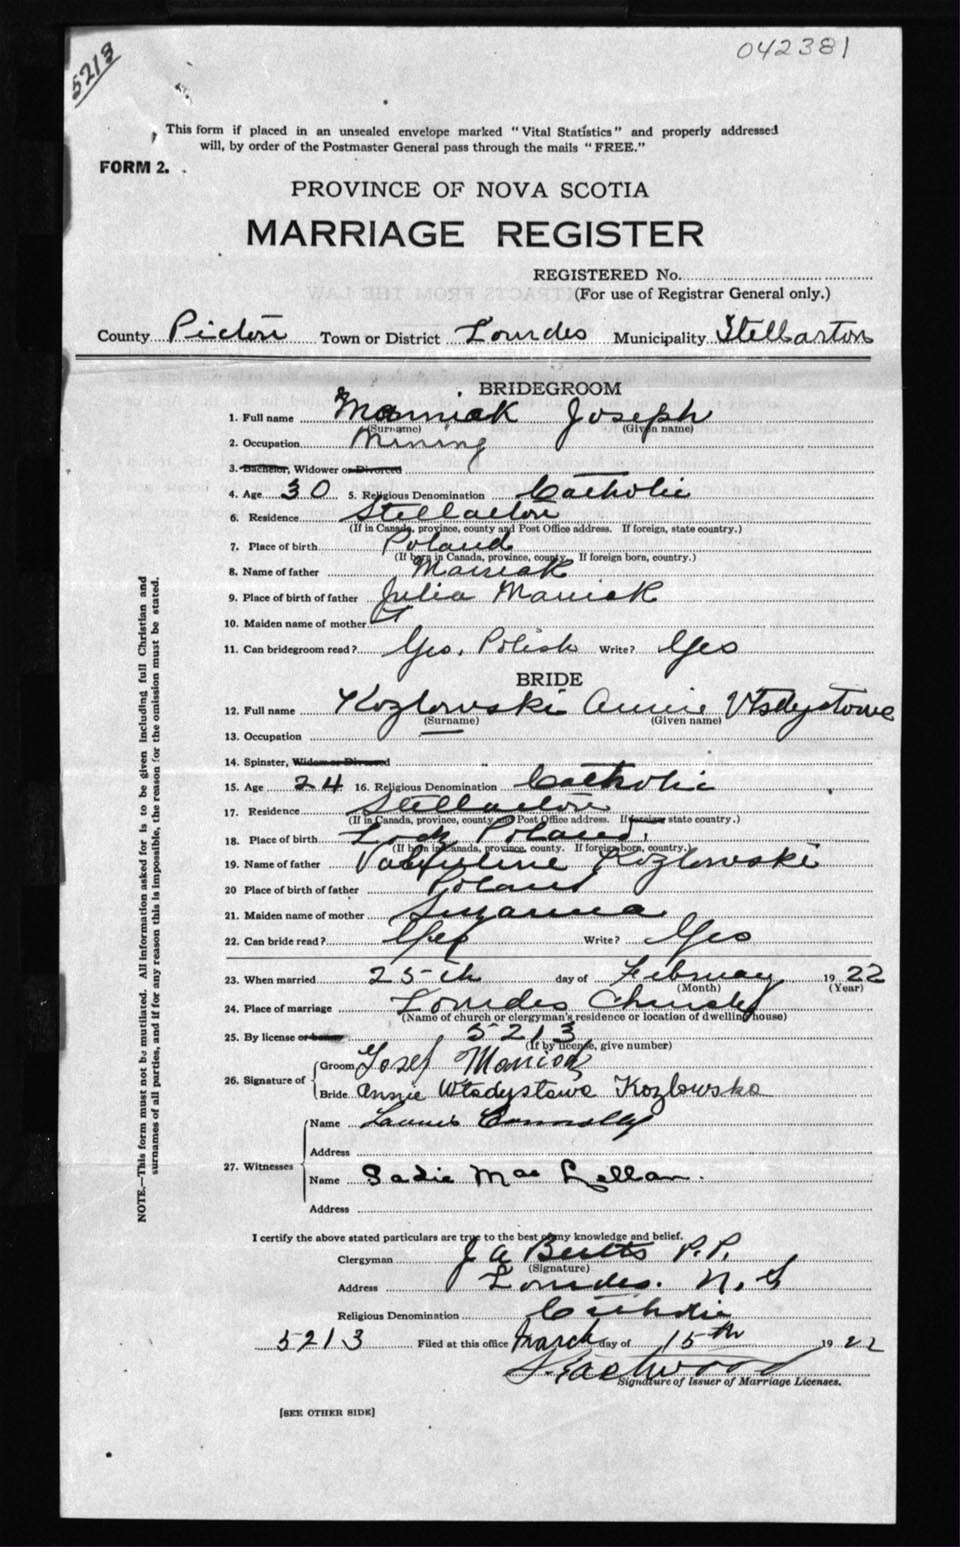 5213
042381
This form if placed in an unsealed envelope marked "Vital Statistics" and properly addressed
will, by order of the Postmaster General pass through the mails "FREE."
FORM 2.
PROVINCE OF NOVA SCOTIA
MARRIAGE REGISTER
REGISTERED No.
(For use of Registrar General only.)
County Pictou Town or District Lourdes Municipality Stellarton
BRIDEGROOM
1. Full name Maniak Joseph
(Surname) (Given name)
2. Occupation Mining
3. Bachelor, Widower or Divorced
4. Age 30 5. Religious Denomination Catholic
6. Residence Stellarton
(If in Canada, province, county and Post Office address. If foreign, state country.)
7. Place of birth Poland
(If born in Canada, province, county. If foreign born, country.)
8. Name of father Maniak
9. Place of birth of father Julia Maniak
10. Maiden name of mother
11. Can bridegroom read? Yes, Polish Write? Yes
BRIDE
12. Full name Kozlowski Annie Wladyslowa
(Surname) (Given name)
13. Occupation
14. Spinster, Widow or Divorced
15. Age 24 16. Religious Denomination Catholic
17. Residence Stellarton
(If in Canada, province, county and Post Office address. If foreign state country.)
18. Place of birth Lodz Poland,
(If born in Canada, province, county. If foreign born, country.)
19. Name of father Kozlowski
20 Place of birth of father Poland
21. Maiden name of mother Suzanna
22. Can bride read? Yes Write? Yes
23. When married 25th day of February 1922
(Month) (Year)
24. Place of marriage Lourdes Church
(Name of church or clergyman's residence or location of dwelling house)
25. By license or banns 5213
(If by license, give number)
26. Signature of
Groom Jozef Maniak
Bride Annie Władysława Kozlowska
27. Witnesses
Name Connolly
Address
Name Sadie Mac Lellan.
Address
I certify the above stated particulars are true to the best of my knowledge and belief.
Clergyman J A Butts P.P.
(Signature)
Address Lourdes. N.S
Religious Denomination Catholic
5213 Filed at this office March day of 15th 1922
Eastwood
Signature of Issuer of Marriage Licenses.
[SEE OTHER SIDE]
NOTE.—This form must not be mutilated. All information asked for is to be given including full Christian and
surnames of all parties, and if for any reason this is impossible, the reason for the omission must be stated.